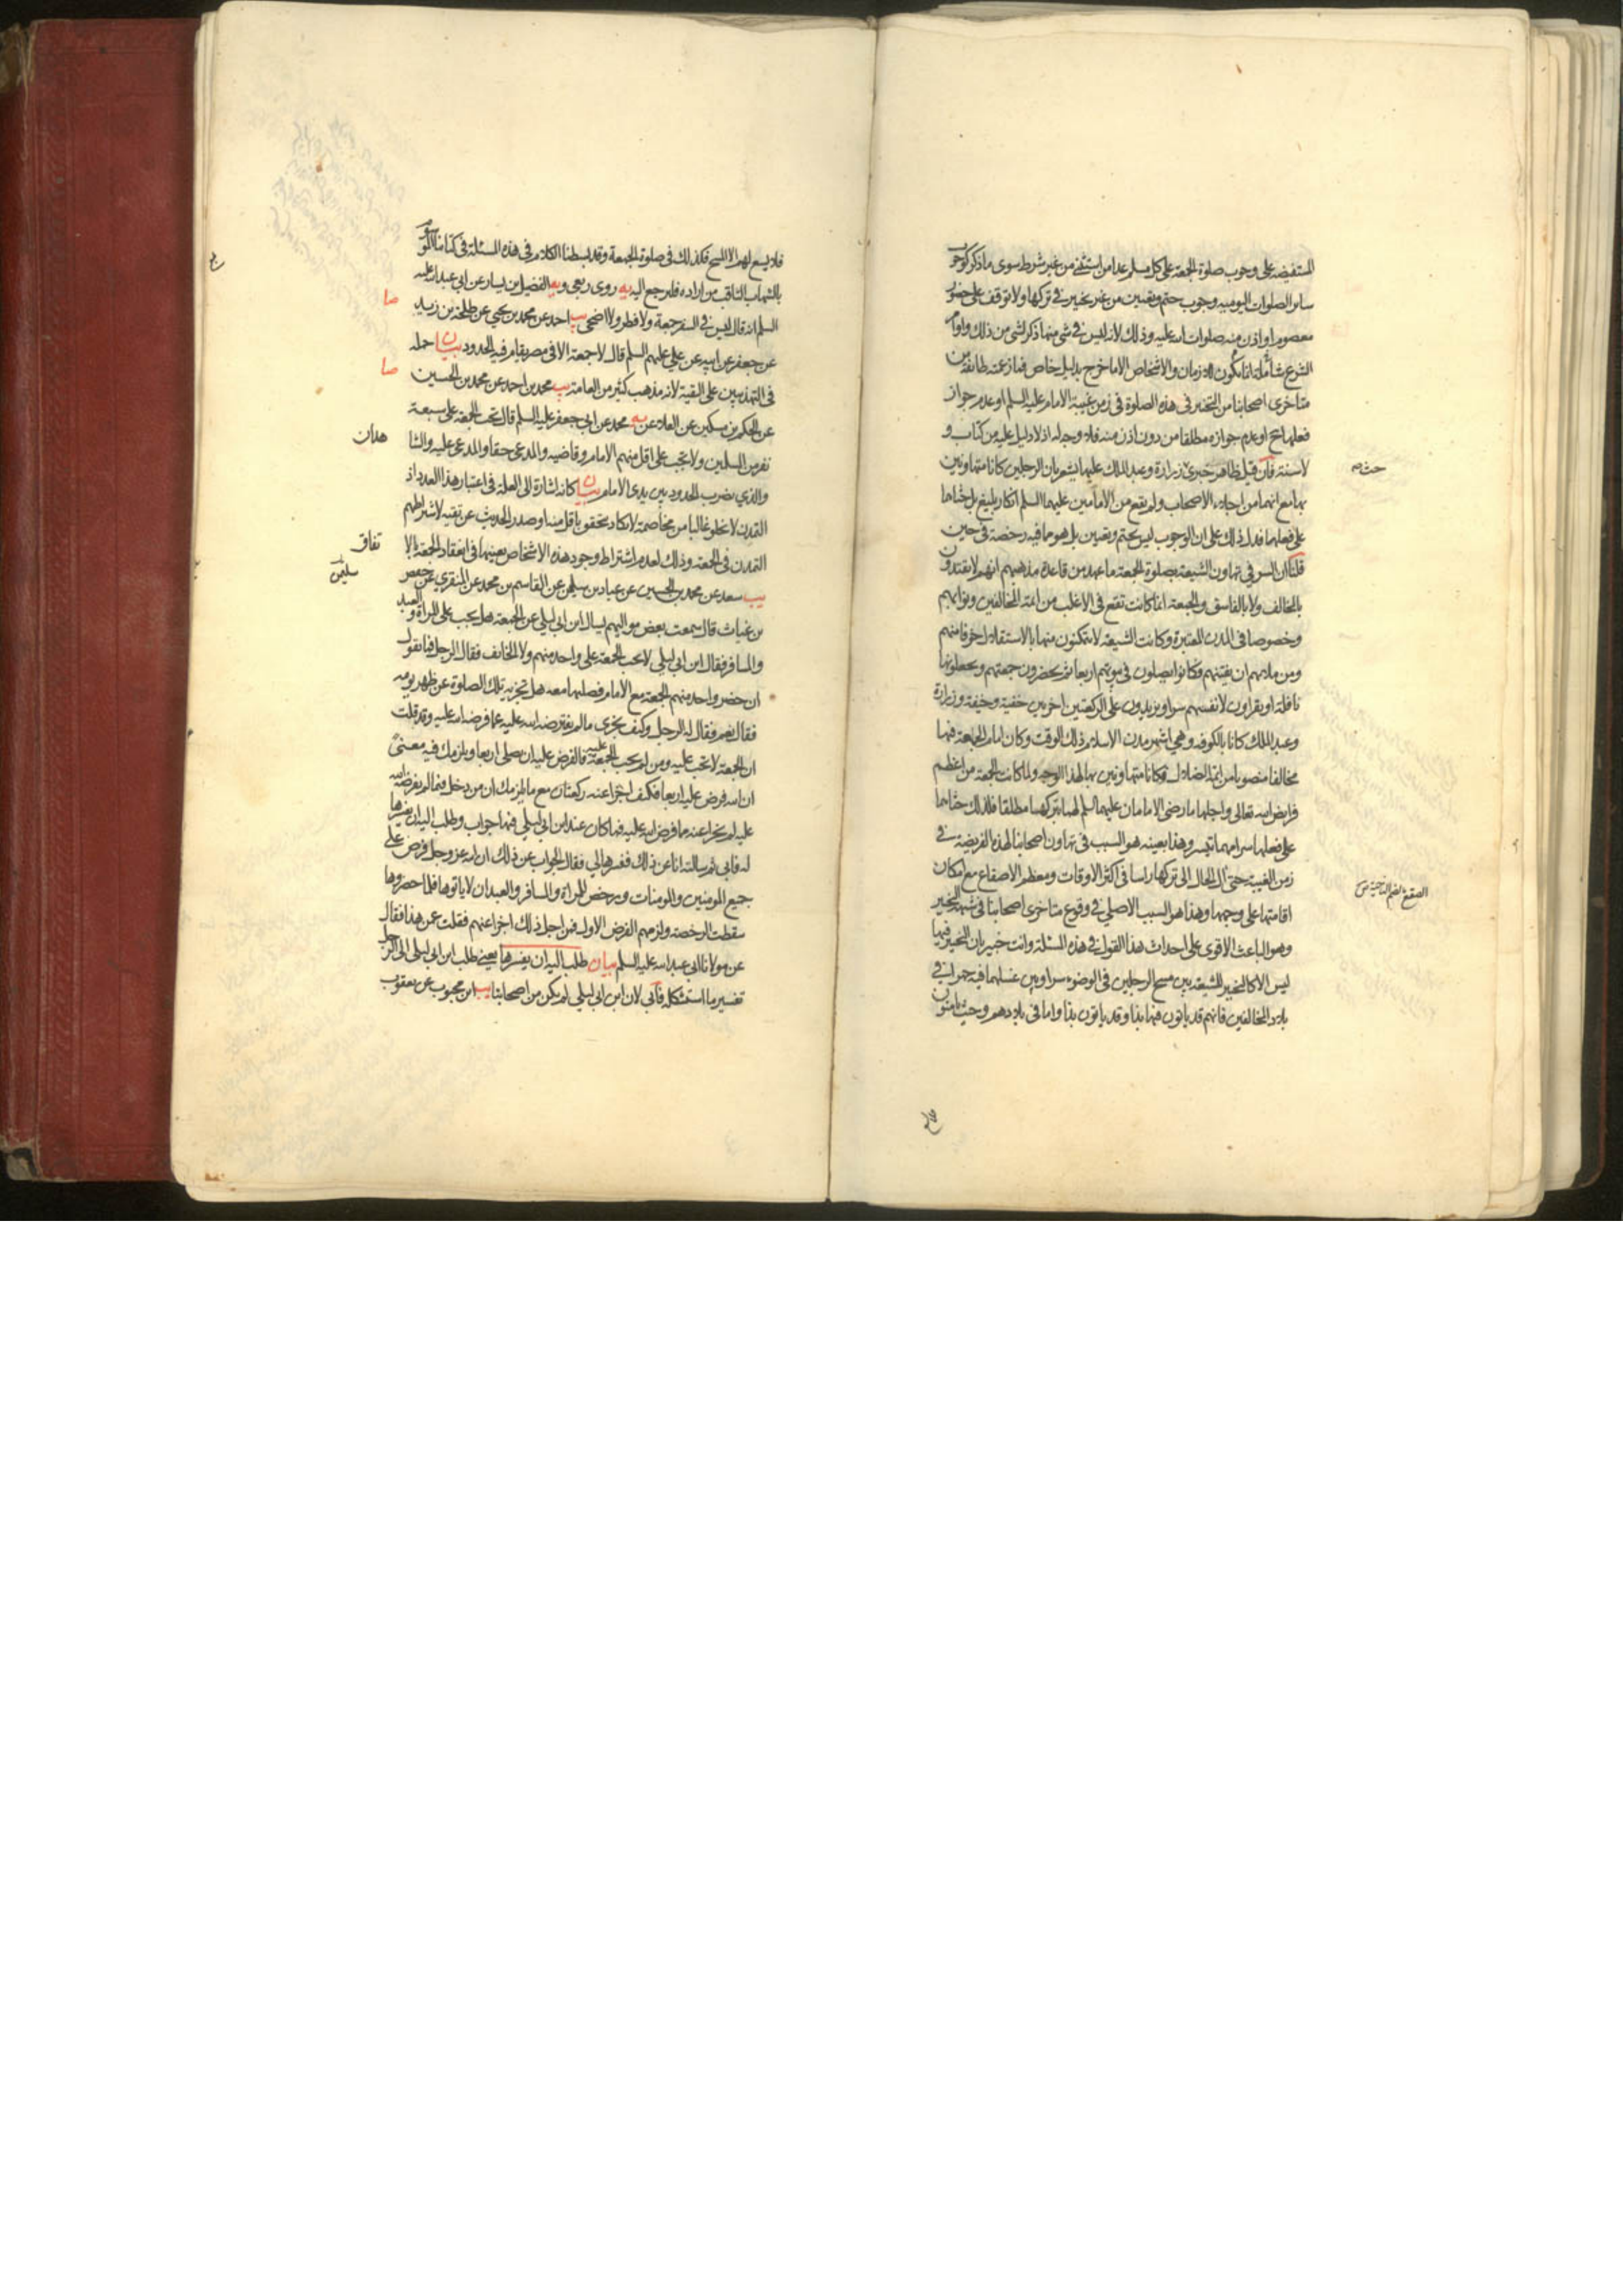 المستفيضه على وجوب صلوة الجمعة على كل مسلم عدا من استثنى من غير شرط سوى ما ذكر كوجوب
سائر الصلوات اليوميه وجوب حتم وتعيين من غير تخيير في تركها ولا توقف على حضور
معصوم او اذن منه صلوات الله عليه وذلك لانه ليس في شئ منها ذكر لشئ من ذلك واوامر
الشرع شاملة انما يكون للازمان والاشخاص الا ما خرج بدليل خاص فما زعمته طائفة من
متاخري اصحابنا من التخيير في هذه الصلوة في زمن غيبة الامام عليه السلم او عدم جواز
فعلها ح او عدم جوازه مطلقا من دون اذن منه فلا وجه له اذ لا دليل عليه من كتاب و
لا سنة فان قيل ظاهر خبري زرارة وعبد الملك عليهما يشعر بان الرجلين كانا متهاونين
بها مع انهما من اجلاء الاصحاب ولم يقع من الامامين عليهما السلم انكار بليغ بل حثاهما
على فعلها فدل ذلك على ان الوجوب ليس بحتم وتعيين بل هو مما فيه رخصة في حين
قلنا ان السر في تهاون الشيعة بصلوة الجمعة ما عهد من قاعدة مذهبهم انهم لا يقتدون
بالمخالف ولا بالفاسق والجمعة انما كانت تقع في الاغلب من ائمة المخالفين ونوابهم
وخصوصا في المدن المعتبرة وكانت الشيعة لا يتمكنون منها بالاستقلال خوفا منهم
ومن ملاتهم ان يفتنهم وكانوا يصلون في بيوتهم اربعا ثم يحضرون جمعتهم ويجعلونها
نافلة او يقراون لانفسهم سرا ويزيدون على الركعتين اخريين خفية وخيفة وزرارة
وعبد الملك كانا بالكوفه وهي اشهر مدن الاسلام ذلك الوقت وكان امام الجمعة فيها
مخالفا منصوبا من ائمة الضلال فكانا متهاونين بها لهذا الوجه ولما كانت الجمعة من اعظم
فرايض الله تعالى واجلها ما رضي الامامان عليهما السلم لهما بتركهما مطلقا فلذلك حثاهما
على فعلها سرا مهما تيسر وهذا بعينه هو السبب في تهاون اصحابنا لهذه الفريضة في
زمن الغيبة حتى آل الحال الى تركها راسا في اكثر الاوقات ومعظم الاصقاع مع امكان
اقامتها على وجهها وهذا هو السبب الاصلي في وقوع متاخري اصحابنا في شبهة التخيير
وهو الباعث الاقوى على احداث هذا القول في هذه المسئلة وانت خبير بان التخيير فيها
ليس الا كالتخيير للشيعة بين مسح الرجلين في الوضوء سرا وبين غسلهما فيه جهرا في
بلاد المخالفين فانهم قد ياتون فيها بذا وقد ياتون بذا واما في بلادهم وحيث يامنون
حثه
الصقع بالضم الناحية ص
فلا يسع لهم الا المسح فكذلك في صلوة الجمعة وقد بسطنا الكلام في هذه المسئلة في كتابنا الموسوم
بالشهاب الثاقب من اراده فليرجع اليه يه روى ربعي ويه الفضيل بن يسار عن ابي عبد الله عليه
السلم انه قال ليس في السفر جمعة ولا فطر ولا اضحى يب احمد عن محمد بن يحيى عن طلحة بن زيد
عن جعفر عن ابيه عن علي عليهم السلم قال لا جمعة الا في مصر يقام فيه الحدود بيان حمله
في التهذيبين على التقية لانه مذهب كثير من العامة يب محمد بن احمد عن محمد بن الحسين
عن الحكم بن مسكين عن العلاء عن يه محمد عن ابي جعفر عليه السلم قال تجب الجمعة على سبعة
نفر من المسلمين ولا تجب على اقل منهم الامام وقاضيه والمدعي حقا والمدعى عليه والشا
هدان
والذي يضرب الحدود بين يدي الامام بيان كانه اشارة الى العلة في اعتبار هذا العدد اذ
التمدن لا يخلو غالبا من مخاصمة لا يكاد يتحقق باقل منه او صدر الحديث عن تقيه لاشتراطهم
التمدن في الجمعة وذلك لعدم اشتراط وجود هذه الاشخاص بعينها في انعقاد الجمعة بالا
تفاق
يب سعد عن محمد بن الحسين عن عباد بن سليمن عن القاسم بن محمد عن المنقري عن حفص
سليمن
بن غياث قال سمعت بعض مواليهم يسال ابن ابي ليلى عن الجمعة هل يجب على المراة والعبد
والمسافر فقال ابن ابي ليلى لا تجب الجمعة على واحد منهم ولا الخائف فقال الرجل فما تقول
ان حضر واحد منهم الجمعة مع الامام فصليها معه هل تجزيه تلك الصلوة عن ظهر يومه
فقال نعم وفقال له الرجل وكيف يجزي ما لم يفترضه الله عليه عما فرضه الله عليه وقد قلت
ان الجمعة لا تجب عليه ومن لم يجب الجمعة عليه فالفرض عليه ان يصلي اربعا ويلزمك فيه معنى
ان الله فرض عليه اربعا فكيف اجزا عنه ركعتان مع ما يلزمك ان من دخل فيما لم يفرضه الله
عليه لم يجز اعنه مما فرض الله عليه فما كان عند ابن ابي ليلى فيها جواب وطلب اليه ان يفسرها
له فابى ثم سالته انا عن ذلك ففسرها لي فقال الجواب عن ذلك ان الله عز وجل فرض على
جميع المومنين والمومنات ورخص للمراة والمسافر والعبد ان لا ياتوها فلما حضروها
سقطت الرخصة ولزمهم الفرض الاول فمن اجل ذلك اجزا عنهم فقلت عمن هذا فقال
عن مولانا ابي عبد الله عليه السلم بيان طلب اليه ان يفسرها يعني طلب ابن ابي ليلى الى الرجل
تفسير ما استشكله فابى لان ابن ابي ليلى لم يكن من اصحابنا يب ابن محبوب عن يعقوب
صا
صا